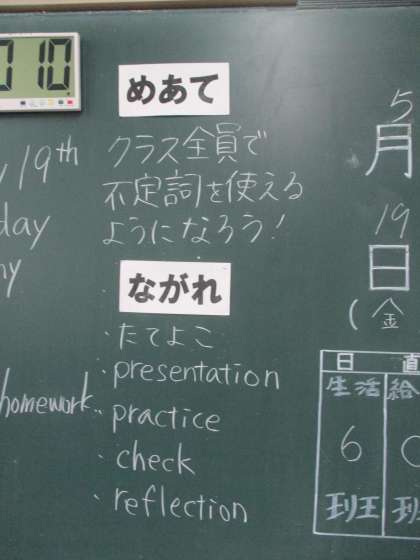 010
めあて
クラス全員で
不定詞を使える
ようになろう!
ながれ
・たてよこ
・presentation
・practice
・check
・reflection
19th
day
ny
homework
5
月
19
日
(金
日直
生活
6
班
給
班